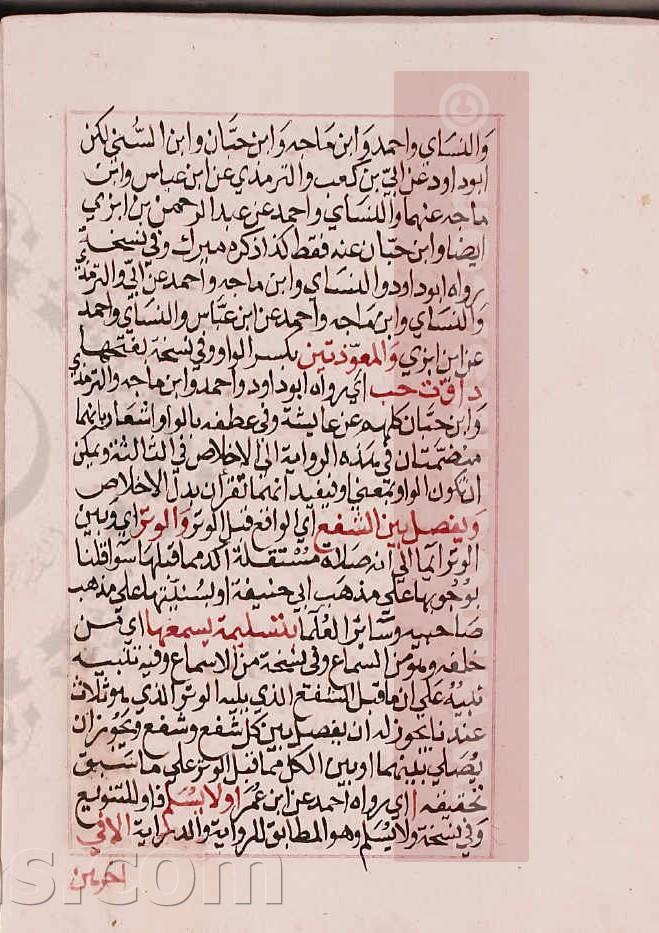 والنساي واحمد وابن ماجه وابن حبان وابن السني لكن
ابوداود عن ابي بن كعب والترمذي عن ابن عباس وابن
ماجه عنهما والنساي واحمد عن عبد الرحمن بن ابزي
ايضا وابن حبان عنه فقط كذا ذكره ميرك وفي نسخة
رواه ابوداود والنساي وابن ماجه واحمد عن ابي والترمذي
والنساي وابن ماجه واحمد عن ابن عباس والنساي واحمد
عن ابن ابزي والمعوذتين بكسر الواو وفي نسخة بفتحها
د ا ق ت حب اي رواه ابوداود واحمد وابن ماجه والترمذي
وابن حبان كلهم عن عايشة وفي عطفه بالواو اشعار بانهما
منضمتان في هذه الرواية الي الاخلاص في الثالثة ويمكن
ان تكون الواو بمعني او ليفيد انهما تقرآن بدل الاخلاص
ويفصل بين الشفع اي الواقع قبل الوتر والوتر اي وبين
الوتر ايما الي انه صلاة مستقلة اكد مما قبلها سوا قلنا
بوجوبها علي مذهب ابي حنيفة او بسنيتها علي مذهب
صاحبيه وسائر العلما بتسليمة يسمعها اي من
خلفه وهو من السماع وفي نسخة من الاسماع وفيه تنبيه
نبيه علي ان ما قبل الشفع الذي يليه الوتر الذي هو ثلاث
عندنا يجوز له ان يفصل بين كل شفع وشفع ويجوز ان
يصلي بينهما او بين الكل مما قبل الوتر علي ما سبق
تحقيقه ا اي رواه احمد عن ابن عمر او لا يسلم فاو للتنويع
وفي نسخة ولا يسلم وهو المطابق للرواية والدراية الا في
اخرهن
ns.com